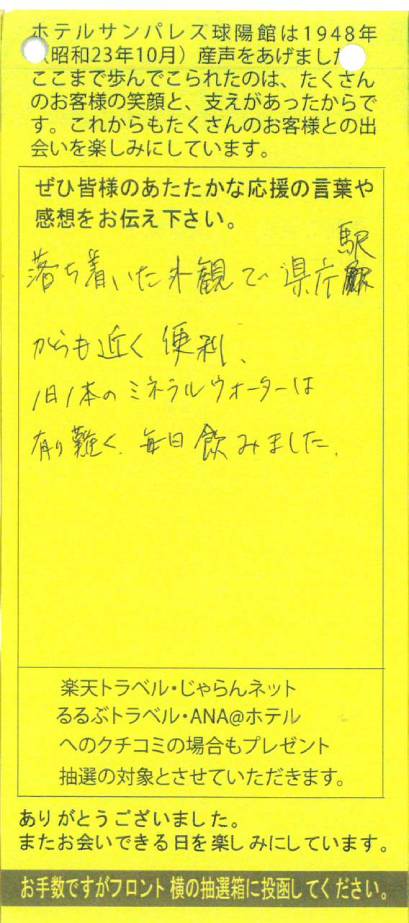 ホテルサンパレス球陽館は1948年
(昭和23年10月）産声をあげました
ここまで歩んでこられたのは、たくさん
のお客様の笑顔と、支えがあったからで
す。これからもたくさんのお客様との出
会いを楽しみにしています。
ぜひ皆様のあたたかな応援の言葉や
感想をお伝え下さい。
落ち着いた外観で県庁駅
からも近く便利、
1日1本のミネラルウォーターは
有り難く、毎日飲みました。
楽天トラベル・じゃらんネット
るるぶトラベル・ANA@ホテル
へのクチコミの場合もプレゼント
抽選の対象とさせていただきます。
ありがとうございました。
またお会いできる日を楽しみにしています。
お手数ですがフロント横の抽選箱に投函してください。